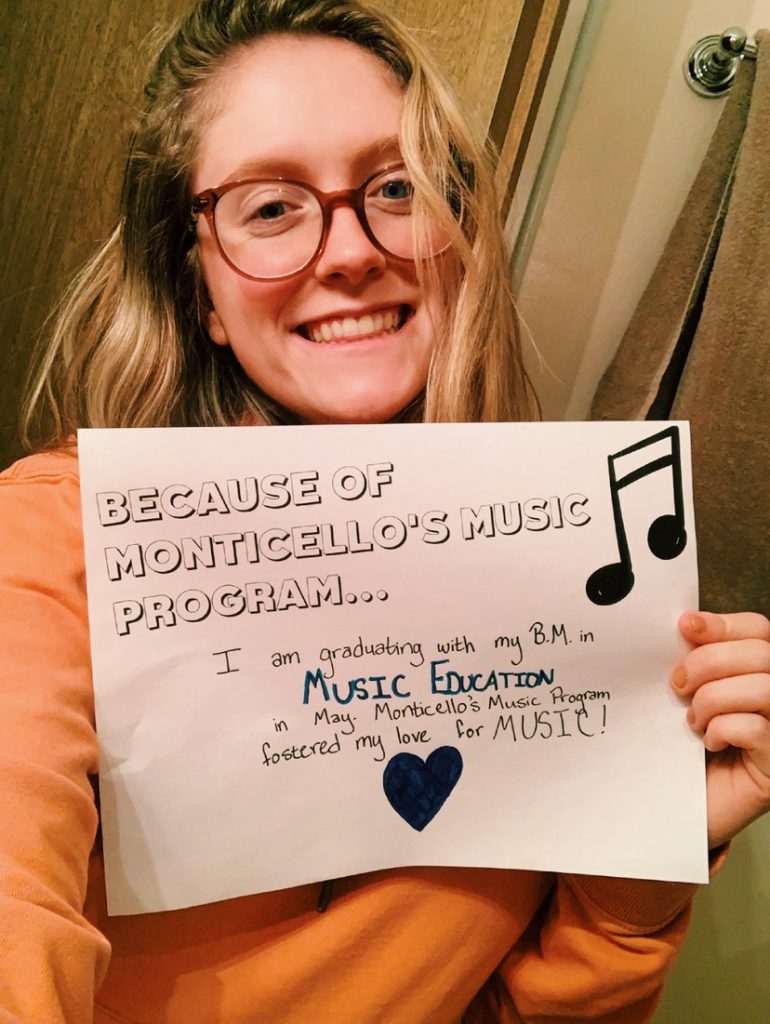 BECAUSE OF
MONTICELLO'S MUSIC
PROGRAM...
I am graduating with my B.M. in
MUSIC EDUCATION
in May. Monticello's Music Program
fostered my love for MUSIC!